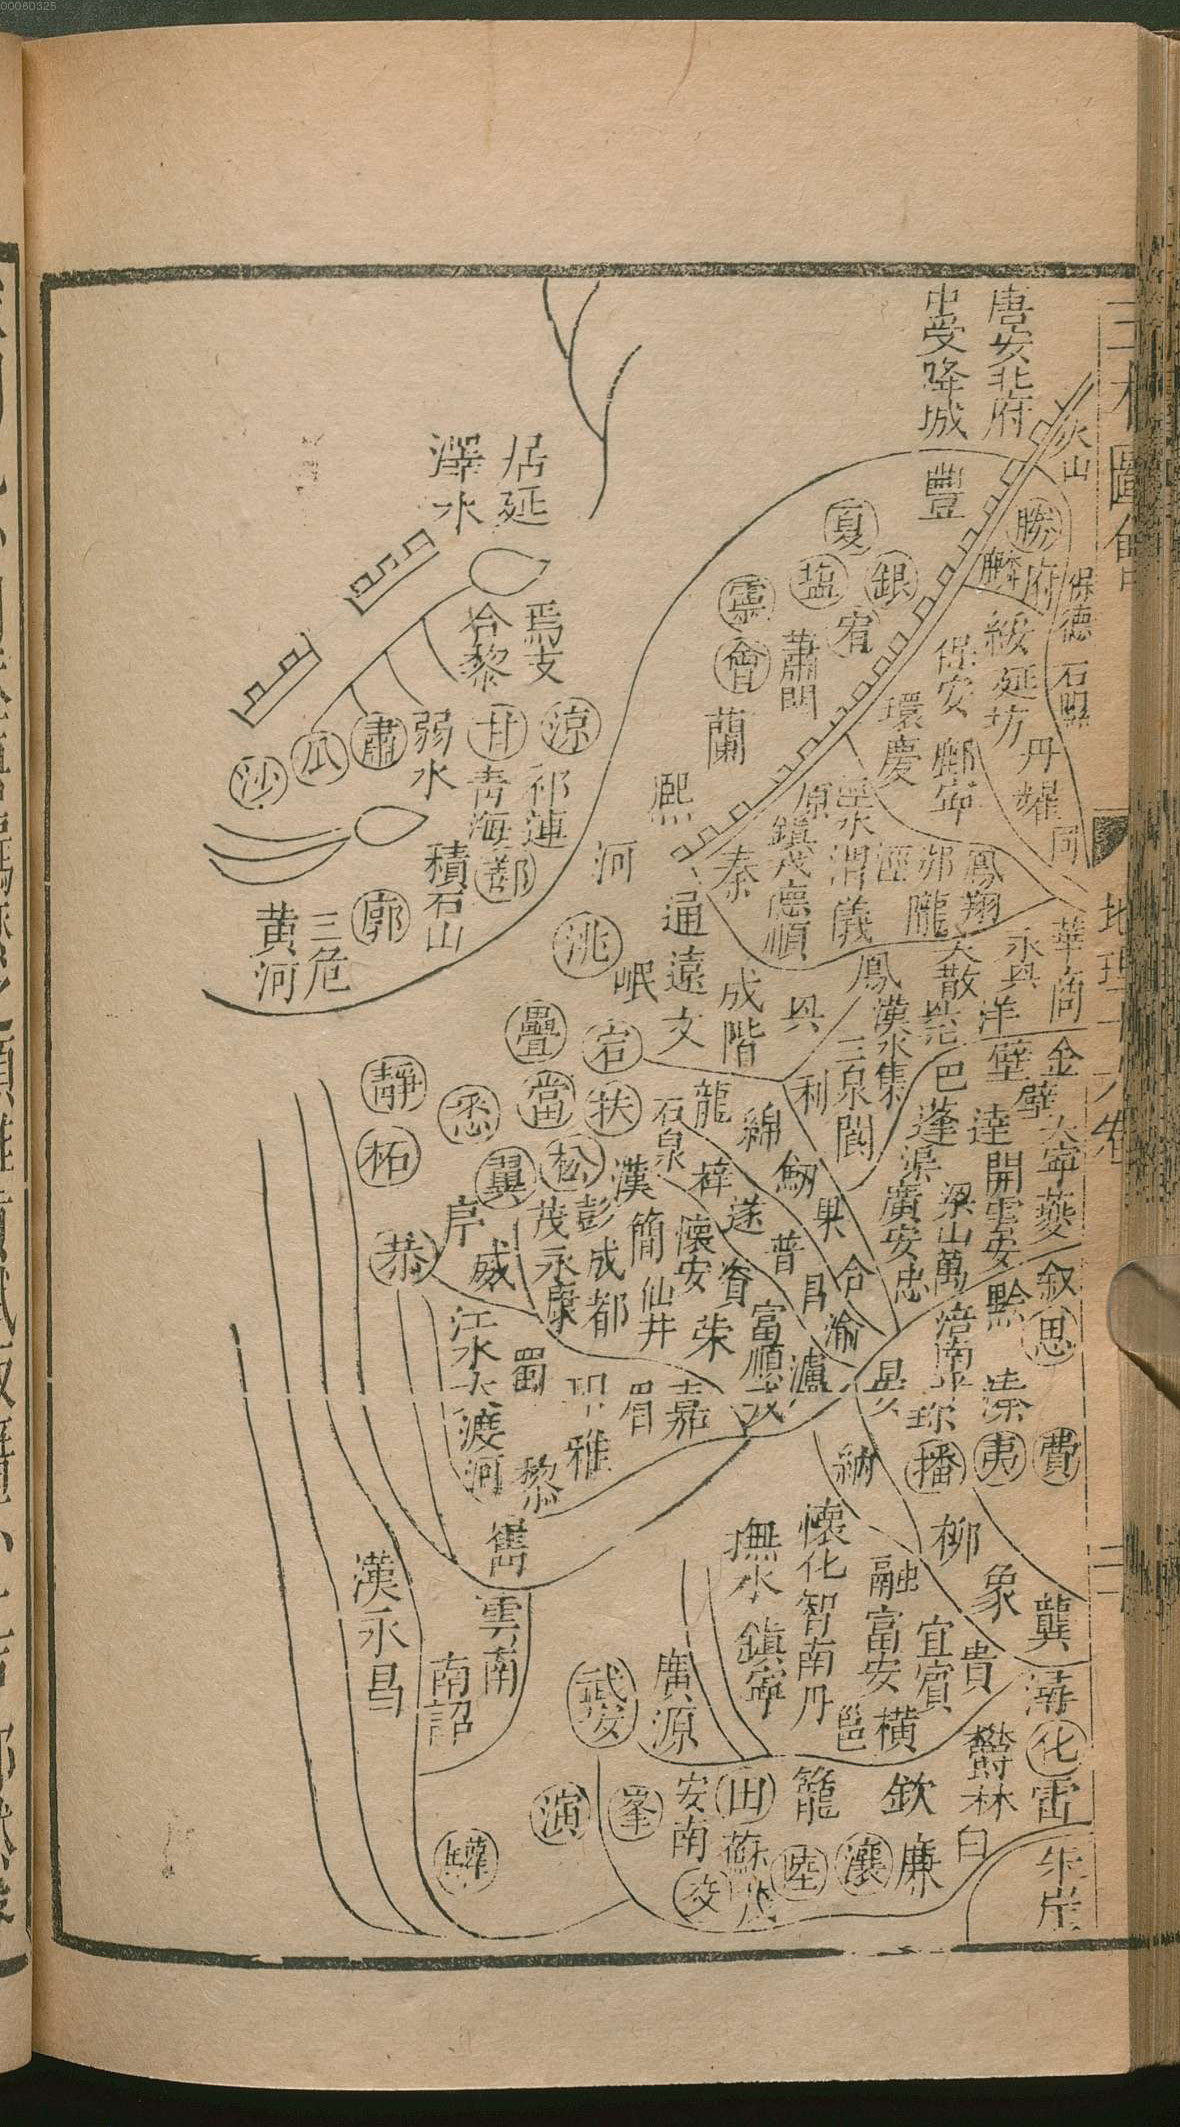 00060325
三才圖會
地理十六卷
唐安北府
中受降城
火山
豐
勝
府
麟
保德
石隰
夏
銀
鹽
宥
靈
會
蕭關
蘭
熙
河
綏
延
坊
丹
耀
同
保安
鄜
寧
環
慶
原
鎮戎
德順
渭
儀
涇
邠
隴
鳳翔
秦
通遠
居延
澤水
焉支
合黎
涼
甘
肅
瓜
沙
弱水
祁連
青海
鄯
積石山
廓
三危
黃河
洮
岷
文
成
階
興
鳳
大散
永興
華
商
金
洋
漢水
三泉
集
利
閬
巴
蓬
渠
廣安
壁
達
開
雲安
梁山
萬
忠
大寧
黔
涪
南平
珍
溱
思
費
夷
播
疊
宕
當
扶
靜
柘
悉
翼
松
恭
威
茂
永康
彭
成都
漢
簡
仙井
懷安
龍
石泉
綿
梓
遂
劍
果
合
普
昌
渝
資
榮
富順
江水
大渡河
蜀
眉
嘉
雅
黎
巂
納
雲南
南詔
漢永昌
撫水
鎮寧
懷化
智
南丹
融
富安
柳
象
龔
宜
賓
貴
橫
邕
武安
廣源
化
雷
欽
廉
白
鬱林
籠
田
安南
峯
演
驩
交
蘇茂
陸
瀼
朱崖